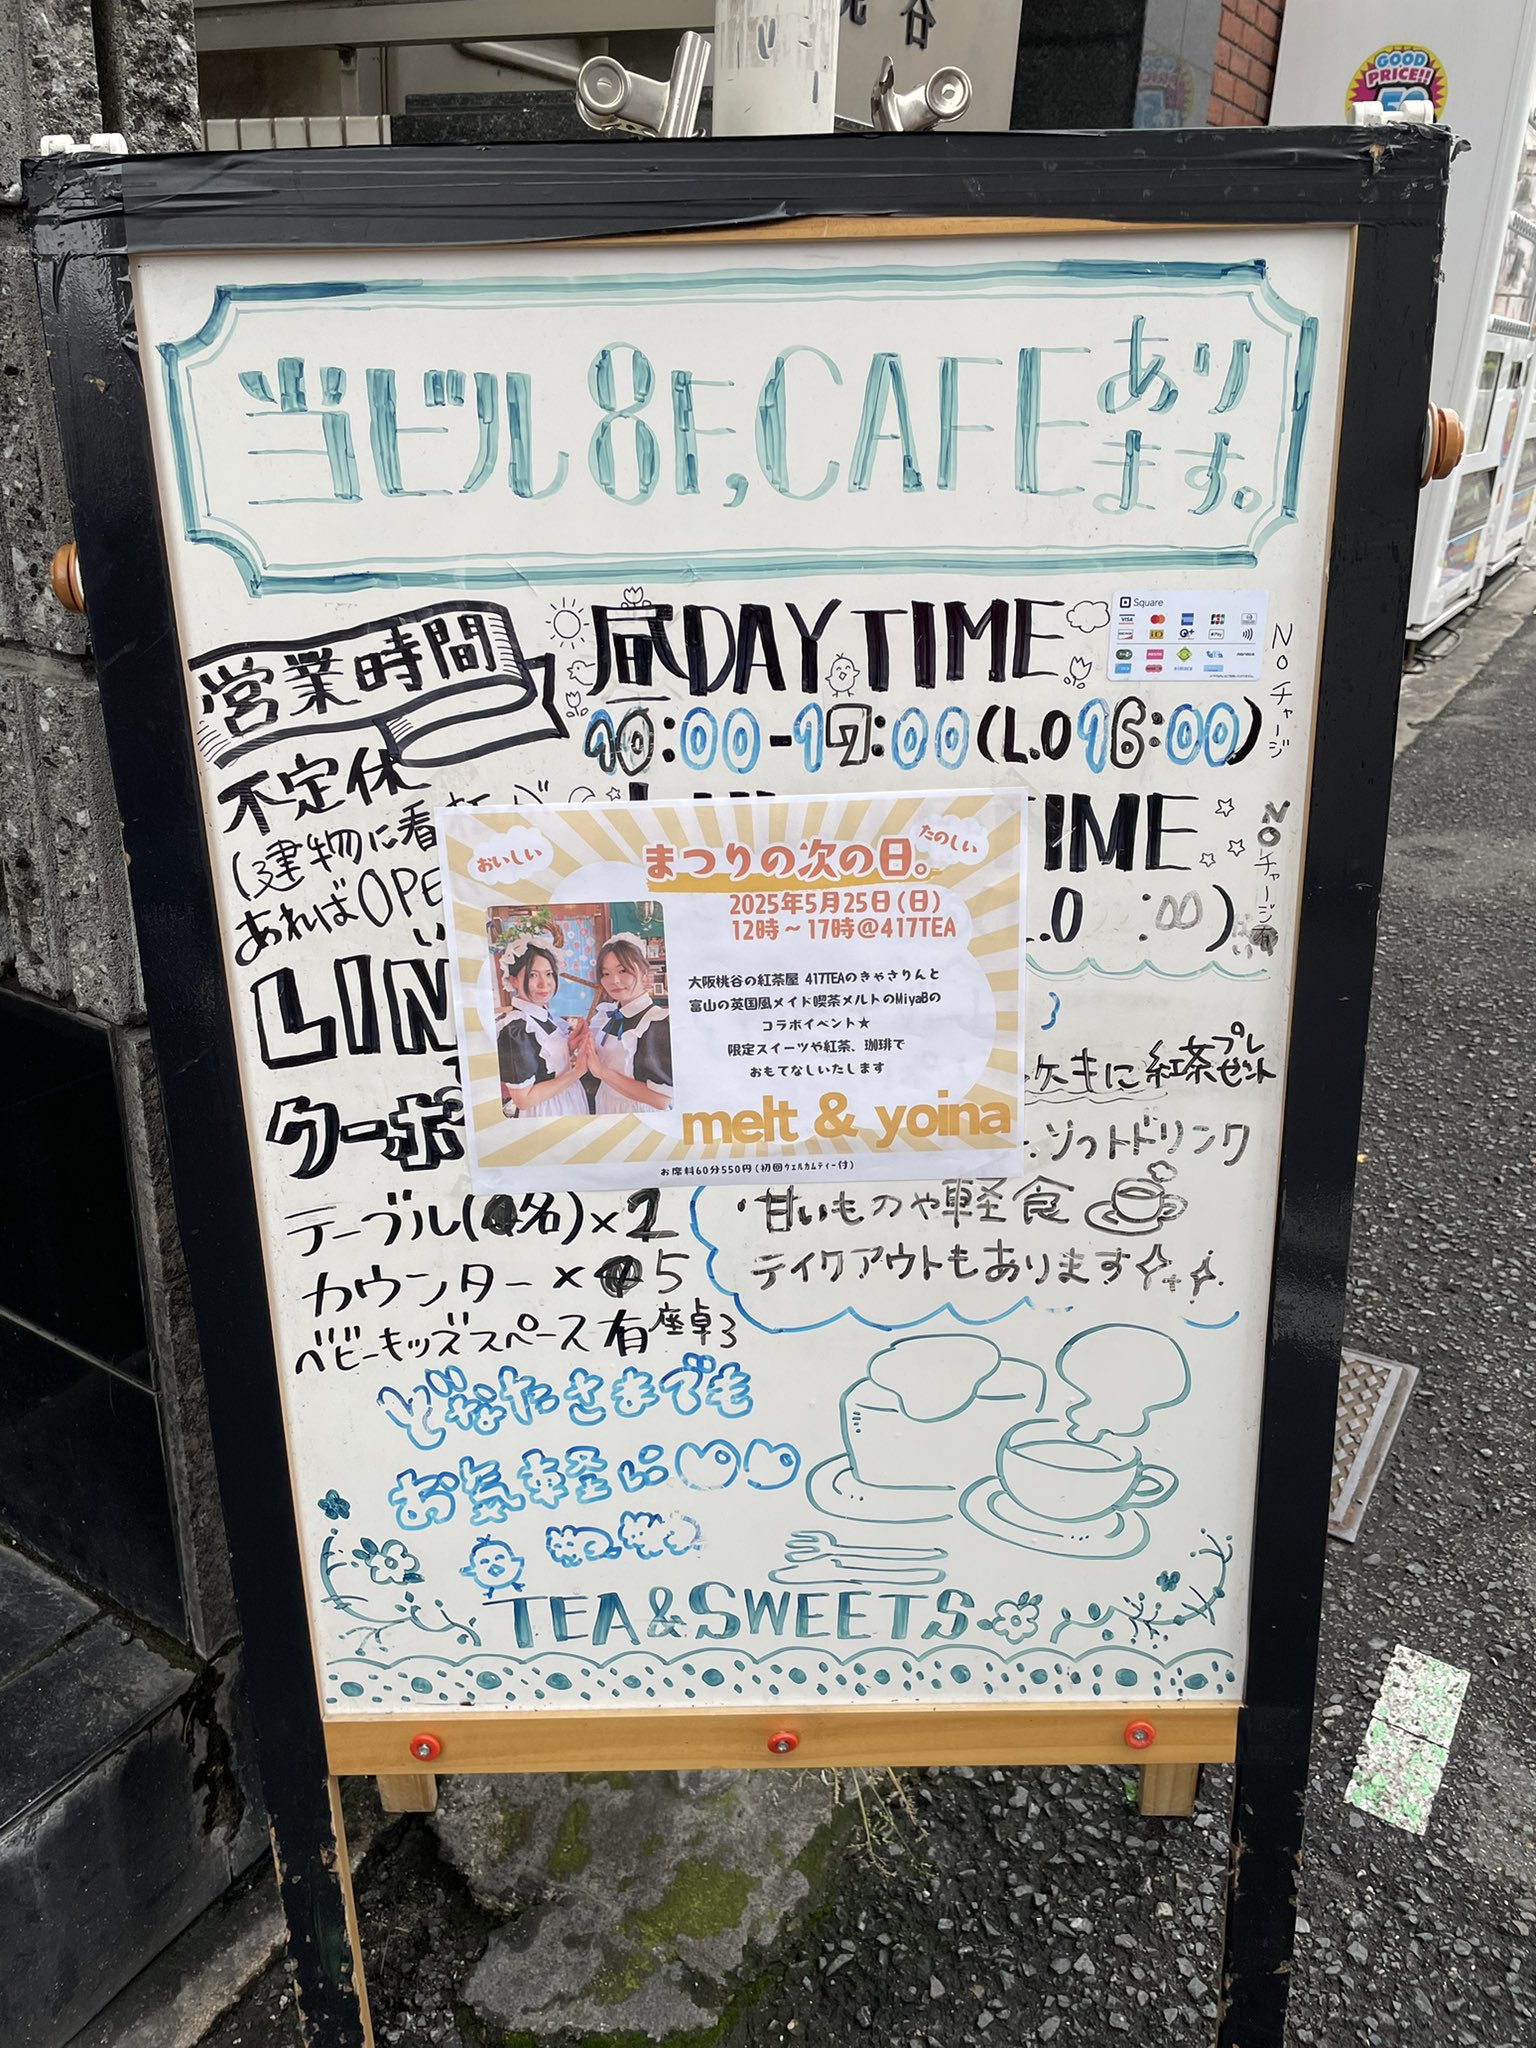 GOOD
PRICE!!
谷
当ビル8F,CAFEあります。
営業時間
昼DAYTIME
Square
VISA
NOチャージ
10:00-17:00(L.O 16:00)
不定休
(建物に看
あればOPE
IME
NOチャージ
:00)
LIN
クーポ
おいしい
たのしい
まつりの次の日。
2025年5月25日(日)
12時~17時@417TEA
大阪桃谷の紅茶屋 417TEAのきゃさりんと
富山の英国風メイド喫茶メルトのMiyaBの
コラボイベント★
限定スイーツや紅茶、珈琲で
おもてなしいたします
melt & yoina
お席料60分550円(初回ウェルカムティー付)
ケーキに紅茶プレゼント
ソフトドリンク
・甘いものや軽食
テイクアウトもあります
テーブル(名)×2
カウンター×5
ベビーキッズスペース有 座卓3
どなたさまでも
お気軽に
TEA&SWEETS